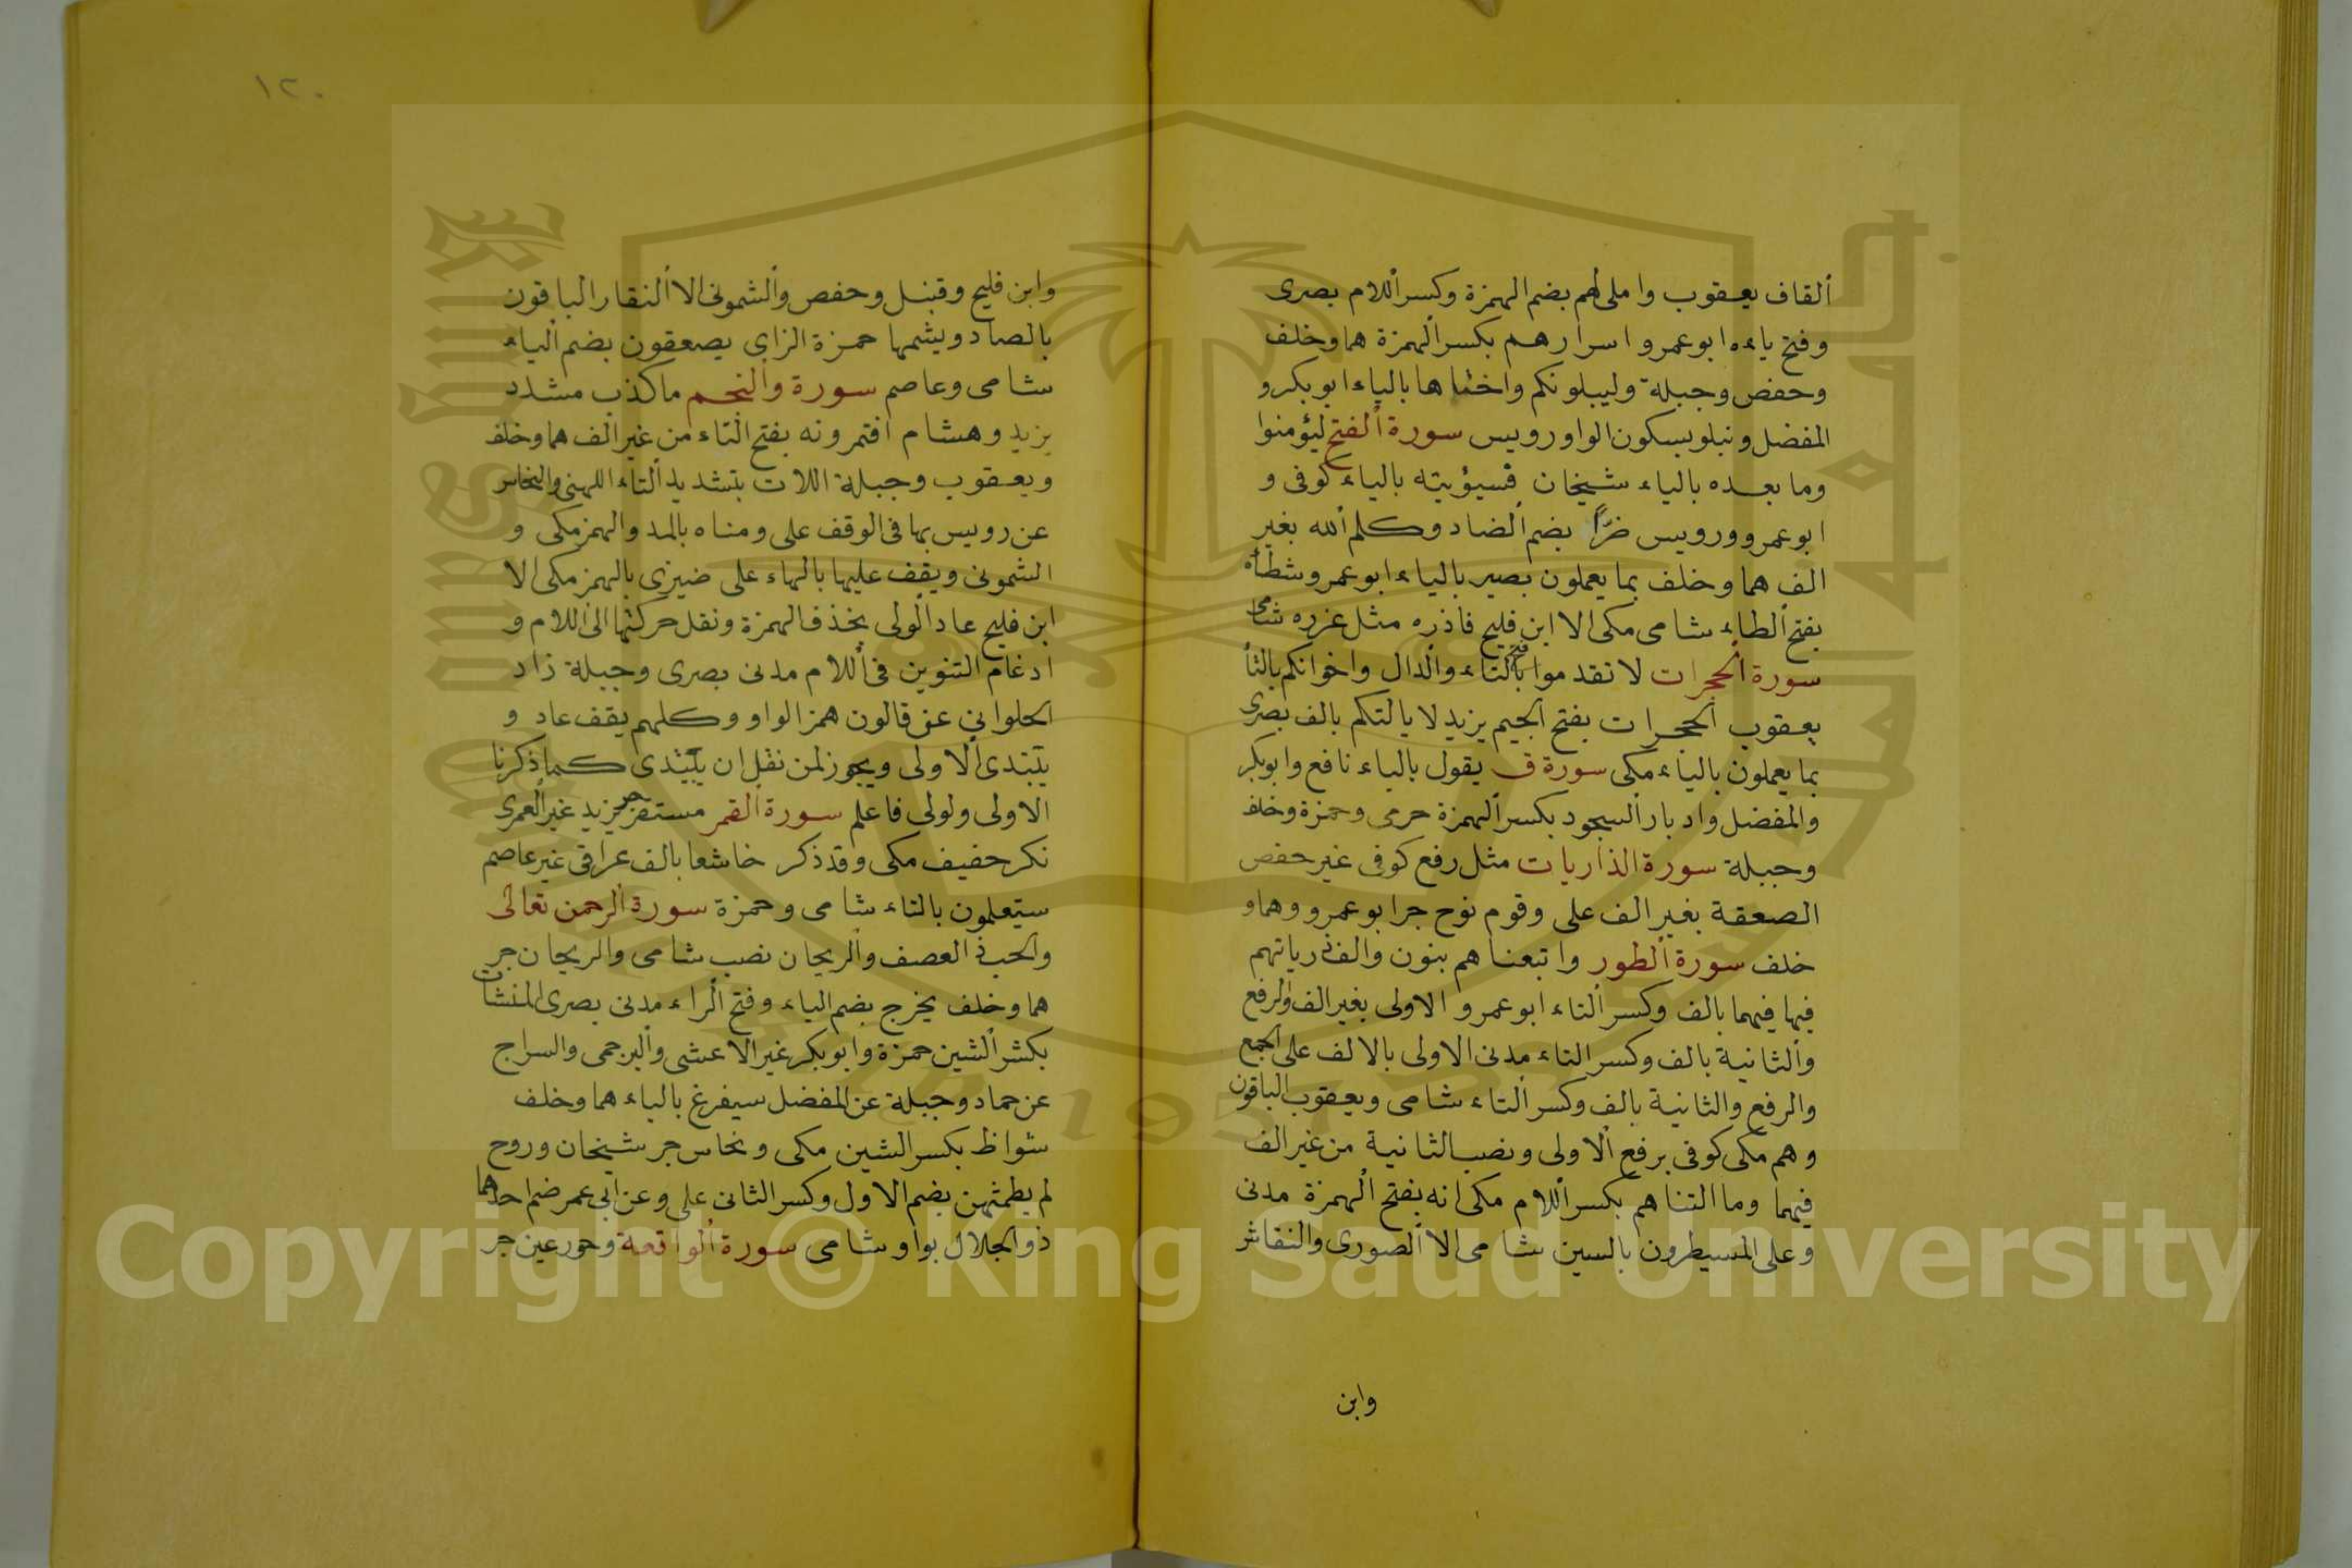 ألقاف يعقوب واملى لهم بضم الهمزة وكسر أللام بصرى
وفتح ياءه ابو عمرو اسرارهم بكسر ألهمزة هما وخلف
وحفص وجبلة وليبلونكم واختاها بالياء ابو بكر و
المفضل ونبلو بسكون الواو رويس سورة ألفتح ليؤمنوا
وما بعده بالياء شيخان فسيؤتيه بالياء كوفى و
ابو عمرو ورويس ضرًّا بضم ألضاد وكلم ألله بغير
الف هما وخلف بما يعملون بصير بالياء ابو عمرو شطأه
بفتح ألطاء شامى مكى الا ابن فليح فاذره مثل عزره شامى
سورة ألحجرات لا تقدموا بفتح التاء وألدال واخوانكم بالتأ
يعقوب ألحجرات بفتح ألجيم يزيد لا يالتكم بالف بصرى
بما يعملون بالياء مكى سورة ق يقول بالياء نافع وابو بكر
والمفضل وادبار ألسجود بكسر ألهمزة حرمى وحمزة وخلف
وجبلة سورة الذاريات مثل رفع كوفى غير حفص
الصعقة بغير الف على وقوم نوح جر ابو عمرو وهما و
خلف سورة ألطور واتبعناهم بنون والف ذرياتهم
فيها فيهما بالف وكسر ألتاء ابو عمرو الاولى بغير الف والرفع
وألثانية بالف وكسر التاء مدنى الاولى بالالف على ألجمع
والرفع والثانية بالف وكسر ألتاء شامى ويعقوب الباقون
وهم مكى كوفى برفع ألاولى ونصب الثانية من غير الف
فيهما وما التناهم بكسر أللام مكى انه بفتح ألهمزة مدنى
وعلى المسيطرون بالسين شامى الا ألصورى والنقاش
وابن
١٢٠
وابن فليح وقنبل وحفص وألشمونى الا ألنقار الباقون
بالصاد ويشمها حمزة الزاى يصعقون بضم ألياء
شامى وعاصم سورة وألنجم ما كذب مشدد
يزيد وهشام افتمرونه بفتح ألتاء من غير الف هما وخلف
ويعقوب وجبلة اللات بتشديد ألتاء اللهبى والنخاس
عن رويس بها فى الوقف على ومناه بالمد والهمز مكى و
الشمونى ويقف عليها بالهاء على ضيزى بالهمز مكى الا
ابن فليح عاد ألولى بحذف الهمزة ونقل حركتها الى أللام و
ادغام التنوين فى أللام مدنى بصرى وجبلة زاد
الحلوانى عن قالون همز الواو وكلهم يقف عاد و
يبتدى ألاولى ويجوز لمن نقل ان يبتدى كما ذكرنا
الاولى ولولى فاعلم سورة ألقمر مستقر جر يزيد غير ألعمرى
نكر خفيف مكى وقد ذكر خاشعا بالف عراقى غير عاصم
ستعلمون بالتاء شامى وحمزة سورة ألرحمن تعالى
والحب ذ العصف وألريحان نصب شامى والريحان جر
هما وخلف يخرج بضم الياء وفتح ألراء مدنى بصرى المنشات
بكشر ألشين حمزة وابو بكر غير الاعشى وألبرجمى والسراج
عن حماد وجبلة عن المفضل سيفرغ بالياء هما وخلف
شواظ بكسر الشين مكى ونحاس جر شيخان وروح
لم يطمثهن بضم الاول وكسر الثانى على وعن ابى عمر ضم احدهما
ذو الجلال بواو شامى سورة ألواقعة وحور عين جر
Copyright © King Saud University
1957